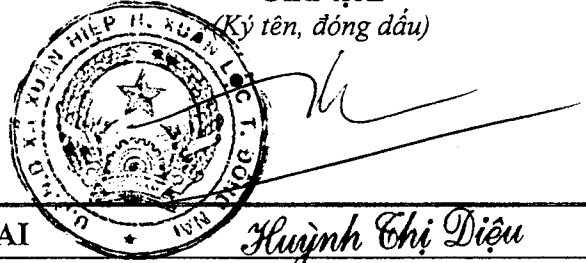 (Ký tên, đóng dấu)
U.B.N.D X. XUÂN HIỆP H. XUÂN LỘC T. ĐỒNG NAI
AI
Huỳnh Thị Diệu